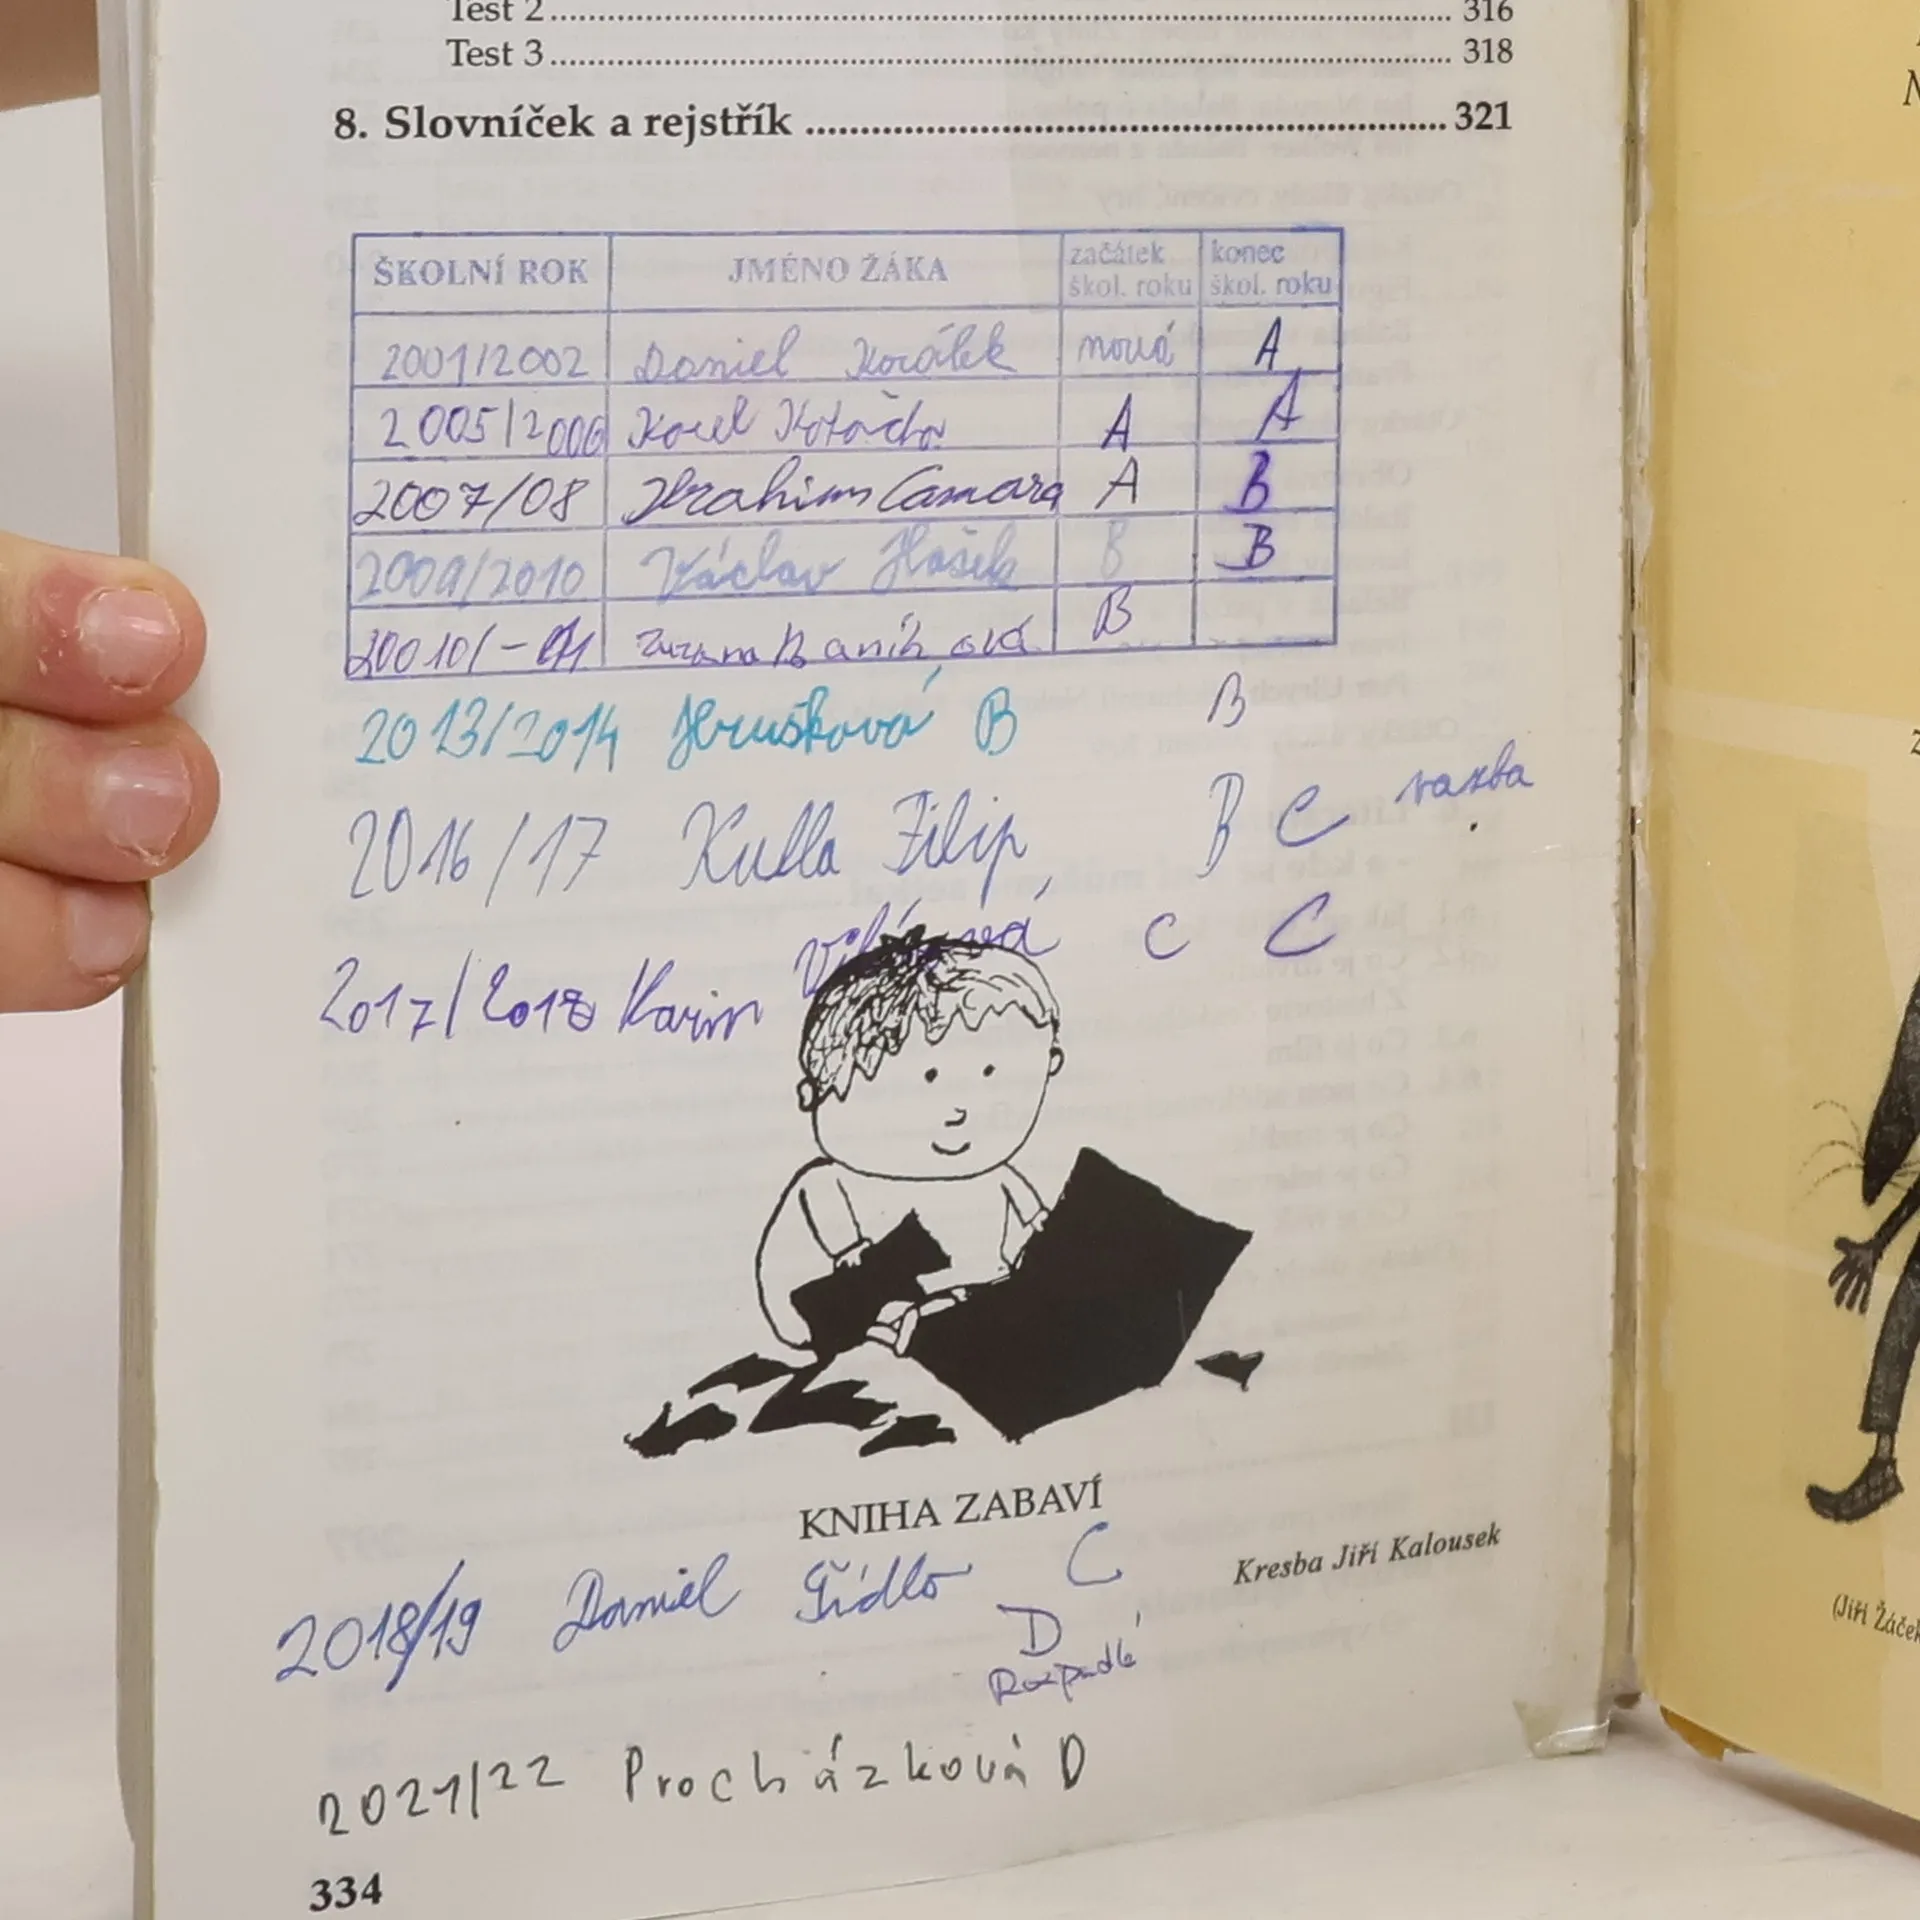 Test 2 ........ 316
Test 3 ........ 318
8. Slovníček a rejstřík ........ 321
ŠKOLNÍ ROK JMÉNO ŽÁKA začátek škol. roku konec škol. roku
2001/2002 Daniel Korálek nová A
2005/2006 Karel A A
2007/08 Ibrahim Camara A B
2009/2010 Václav Hašek B B
20010/-011 Zuzana B
2013/2014 Hrušková B B
2016/17 Kulla Filip, B C vazba
2017/2018 Karin C C
KNIHA ZABAVÍ
Kresba Jiří Kalousek
2018/19 Daniel Šídlo C
D
Rozpadlé
2021/22 Procházková D
334
(Jiří Žáček